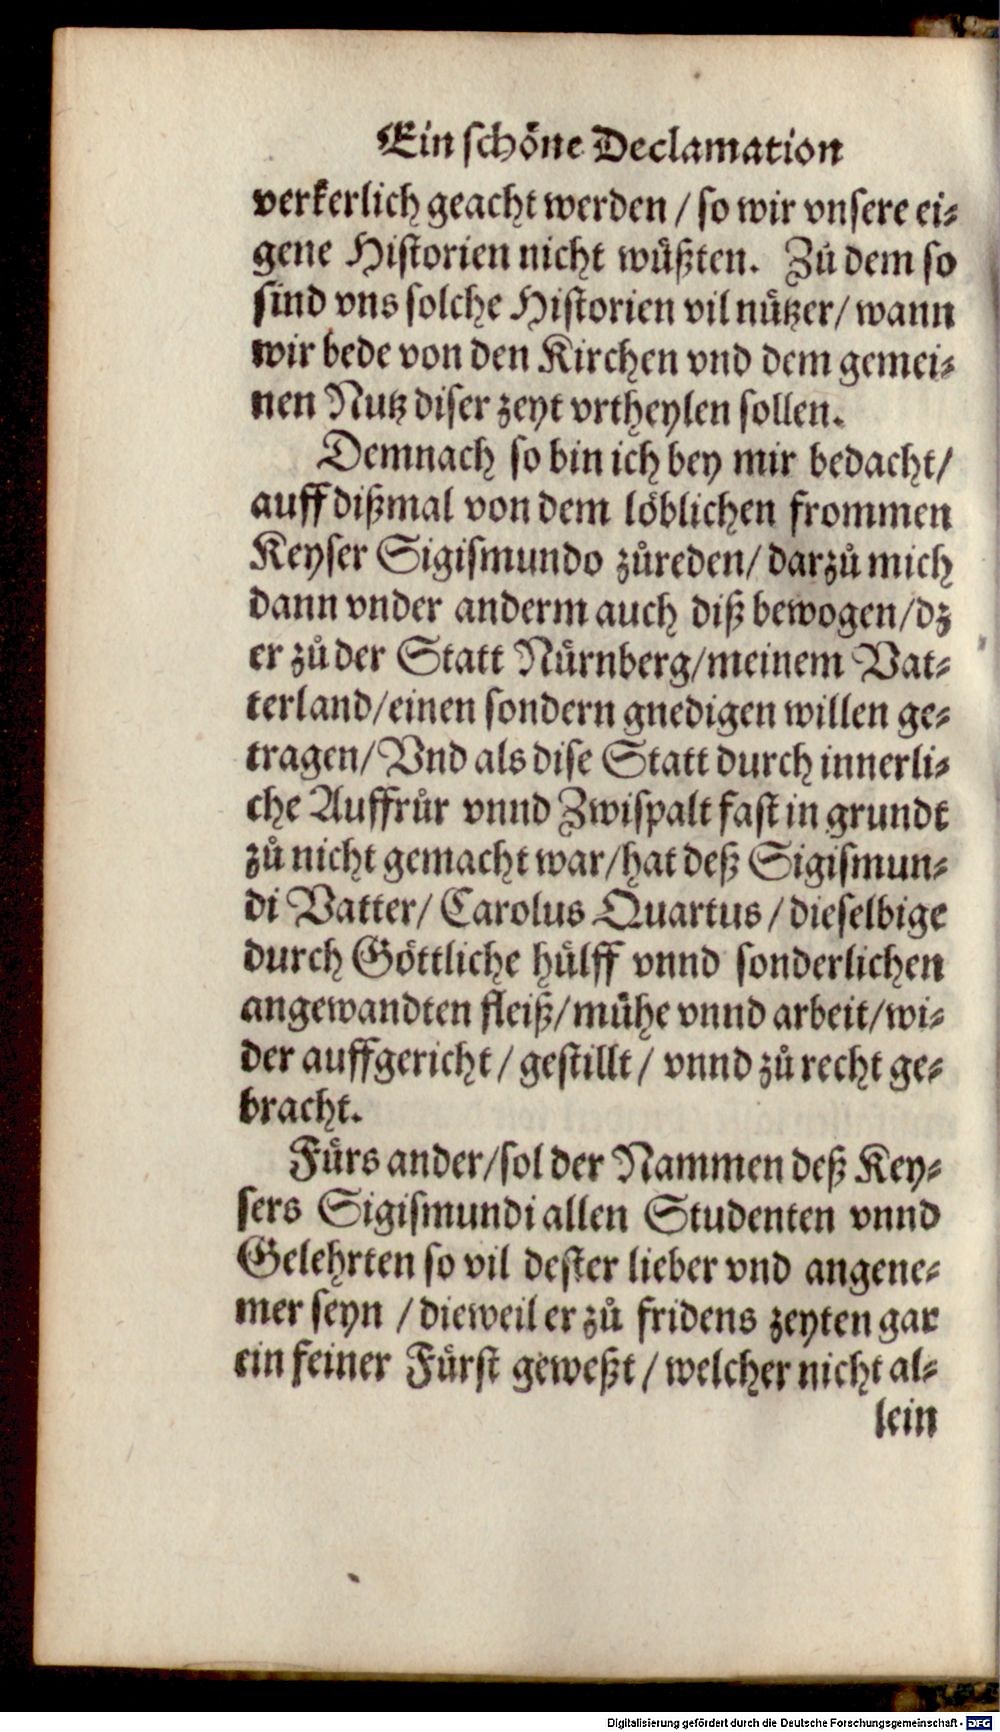 Ein schöne Declamation
verkerlich geacht werden / so wir vnsere ei⸗
gene Historien nicht wüßten. Zů dem so
sind vns solche Historien vil nützer / wann
wir bede von den Kirchen vnd dem gemei⸗
nen Nutz diser zeyt vrtheylen sollen.
Demnach so bin ich bey mir bedacht /
auff dißmal von dem löblichen frommen
Keyser Sigismundo zůreden / darzů mich
dann vnder anderm auch diß bewogen / dz
er zů der Statt Nürnberg / meinem Vat⸗
terland / einen sondern gnedigen willen ge⸗
tragen / Vnd als dise Statt durch innerli⸗
che Auffrůr vnnd Zwispalt fast in grundt
zů nicht gemacht war / hat deß Sigismun⸗
di Vatter / Carolus Quartus / dieselbige
durch Göttliche hülff vnnd sonderlichen
angewandten fleiß / mühe vnnd arbeit / wi⸗
der auffgericht / gestillt / vnnd zů recht ge⸗
bracht.
Fürs ander / sol der Nammen deß Key⸗
sers Sigismundi allen Studenten vnnd
Gelehrten so vil dester lieber vnd angene⸗
mer seyn / dieweil er zů fridens zeyten gar
ein feiner Fürst geweßt / welcher nicht al⸗
lein
Digitalisierung gefördert durch die Deutsche Forschungsgemeinschaft - DFG